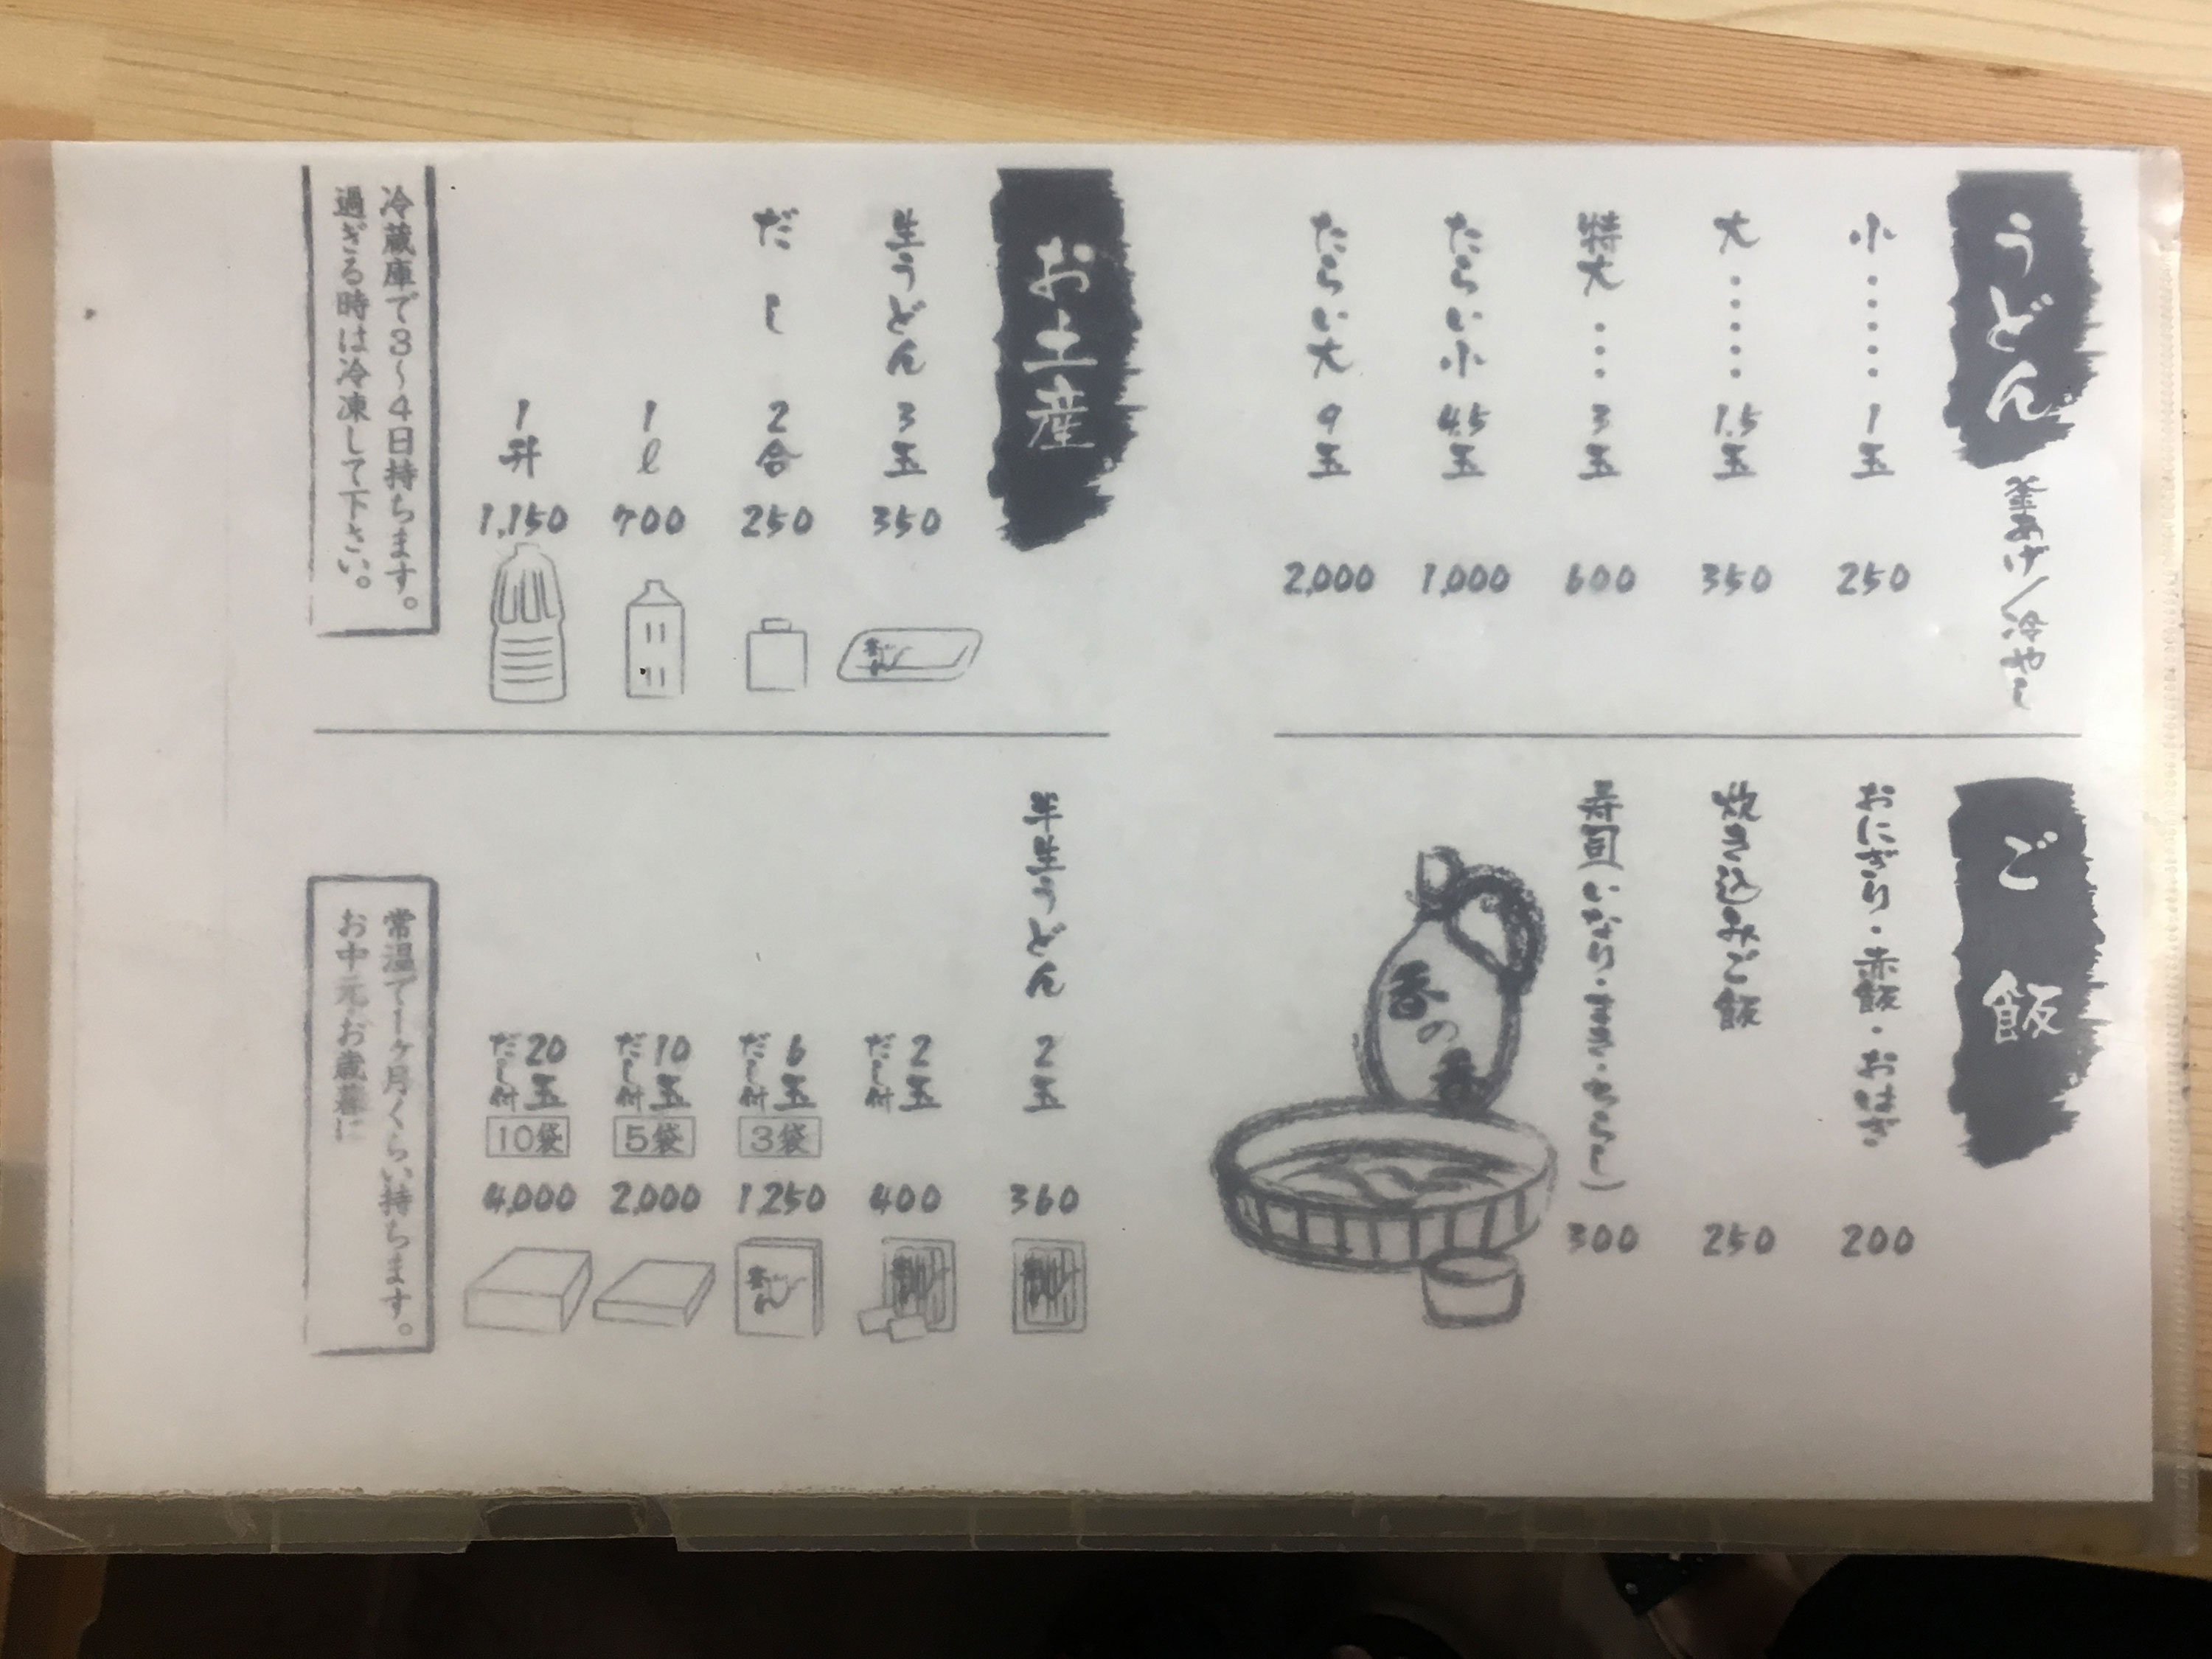 うどん 釜あげ/冷やし
小・・・・・1玉 250
大・・・・・1.5玉 350
特大・・・3玉 600
たらい小 4.5玉 1,000
たらい大 9玉 2,000
ご飯
おにぎり・赤飯・おはぎ 200
炊き込みご飯 250
寿司(いなり・まき・ちらし) 300
香の香
お土産
生うどん 3玉 350
だし 2合 250
1ℓ 700
1升 1,150
冷蔵庫で3〜4日持ちます。
過ぎる時は冷凍して下さい。
半生うどん 2玉 360
2玉 だし付 400
6玉 だし付 3袋 1,250
10玉 だし付 5袋 2,000
20玉 だし付 10袋 4,000
常温で1ヶ月くらい持ちます。
お中元お歳暮に